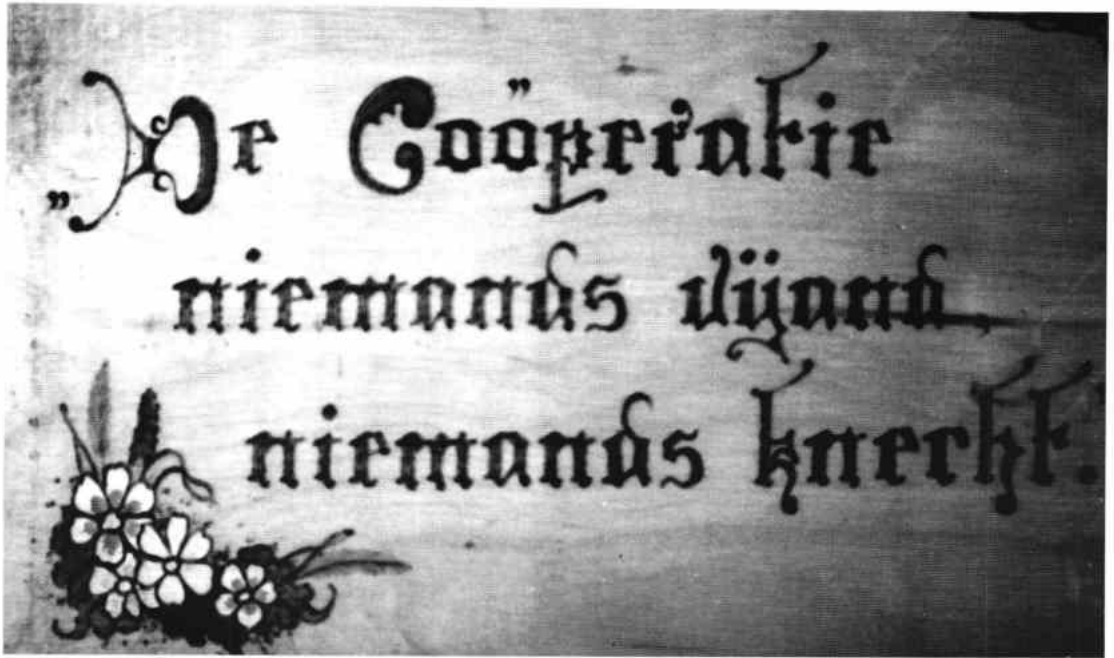 „De Coöperatie
niemands vijand,
niemands knecht.